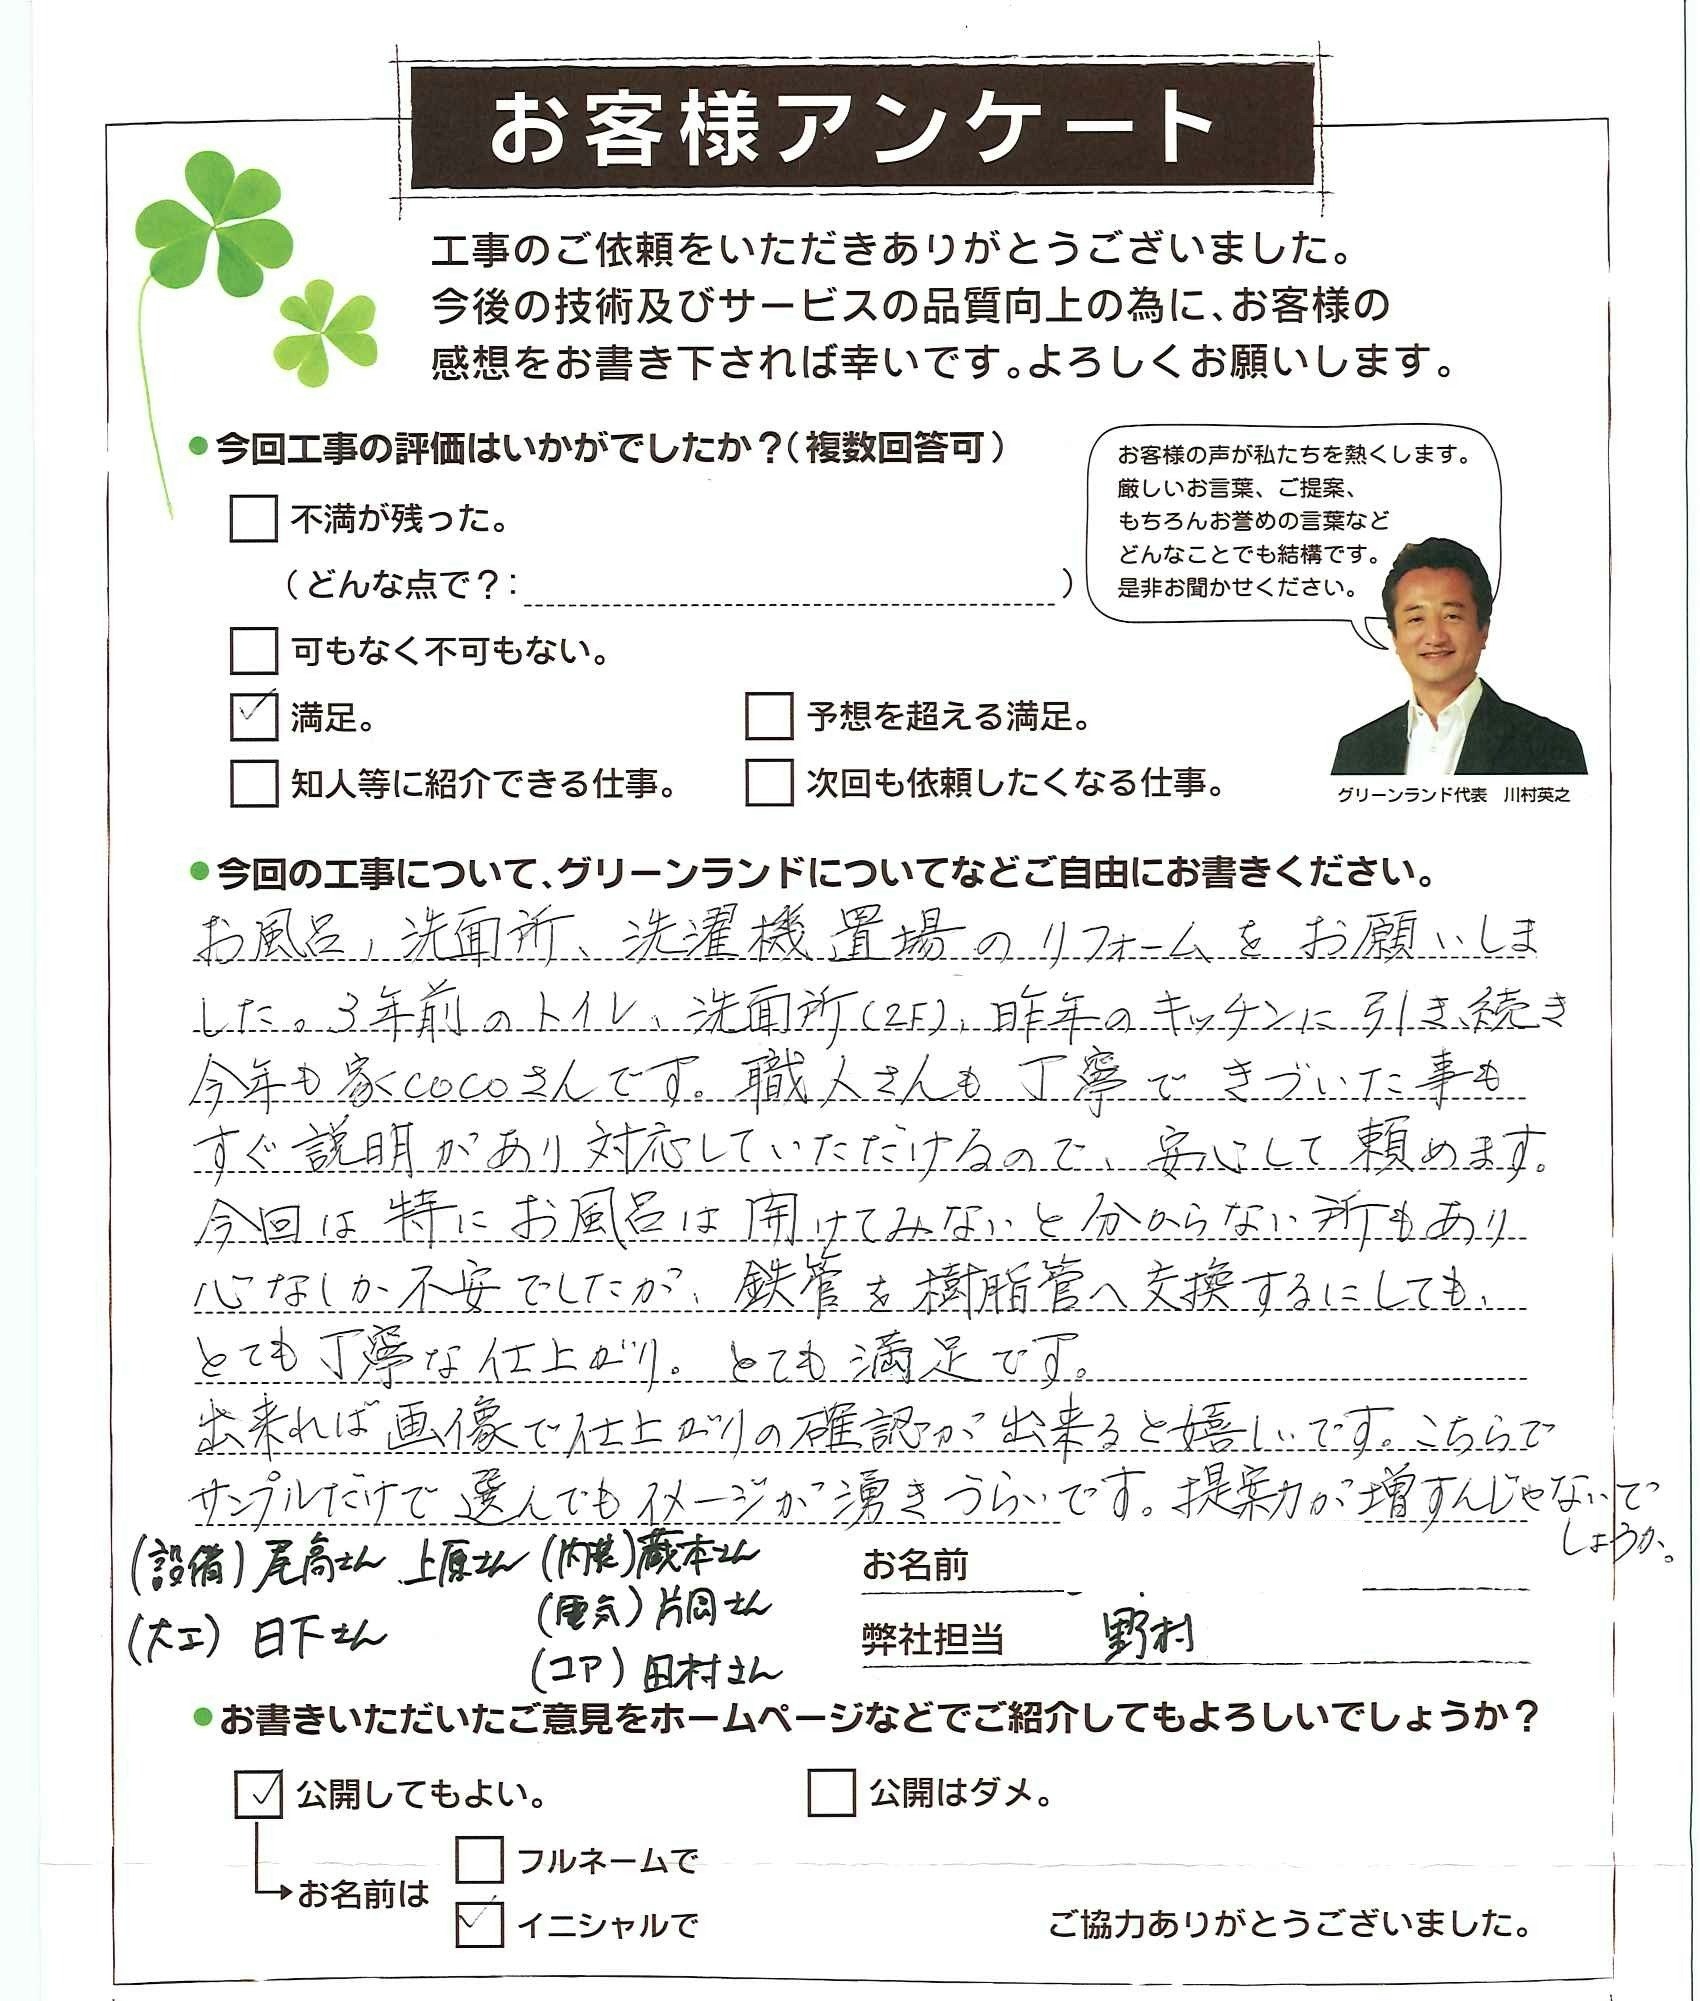 お客様アンケート
工事のご依頼をいただきありがとうございました。
今後の技術及びサービスの品質向上の為に、お客様の
感想をお書き下されば幸いです。よろしくお願いします。
●今回工事の評価はいかがでしたか？（複数回答可）
不満が残った。
（どんな点で？：　）
可もなく不可もない。
満足。
予想を超える満足。
知人等に紹介できる仕事。
次回も依頼したくなる仕事。
お客様の声が私たちを熱くします。
厳しいお言葉、ご提案、
もちろんお誉めの言葉など
どんなことでも結構です。
是非お聞かせください。
グリーンランド代表　川村英之
●今回の工事について、グリーンランドについてなどご自由にお書きください。
お風呂，洗面所、洗濯機置場のリフォームをお願いしま
した。3年前のトイレ、洗面所(2F)、昨年のキッチンに引き続き
今年も家COCOさんです。職人さんも丁寧できづいた事も
すぐ説明があり対応していただけるので、安心して頼めます。
今回は特にお風呂は開けてみないと分からない所もあり
心なしか不安でしたが、鉄管を樹脂管へ交換するにしても、
とても丁寧な仕上がり。とても満足です。
出来れば画像で仕上がりの確認が出来ると嬉しいです。こちらで
サンプルだけで選んでもイメージが湧きうらいです。提案力が増すんじゃないで
しょうか。
(設備)尾高さん 上原さん (内装)蔵本さん
(電気)片岡さん
(大工) 日下さん
(コア)田村さん
お名前
弊社担当　野村
●お書きいただいたご意見をホームページなどでご紹介してもよろしいでしょうか？
公開してもよい。
公開はダメ。
お名前は
フルネームで
イニシャルで
ご協力ありがとうございました。